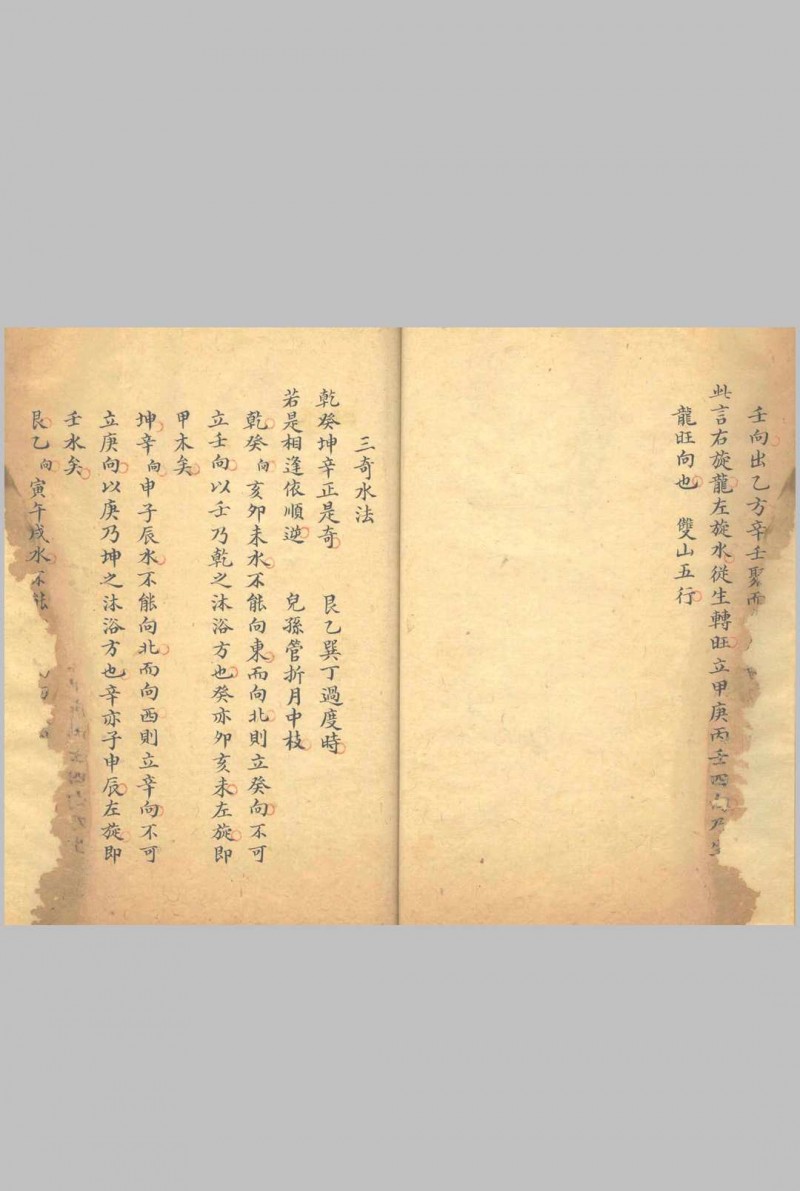 壬向出乙方辛壬聚而
此言右旋龍左旋水從生轉旺立甲庚丙壬四向乃生
龍旺向也　雙山五行
三奇水法
乾癸坤辛正是奇　艮乙巽丁過度時
若是相逢依順逆　兒孫管折月中枝
乾癸向亥卯未水不能向東而向北則立癸向不可
立壬向以壬乃乾之沐浴方也癸亦卯亥未左旋即
甲木矣
坤辛向申子辰水不能向北而向西則立辛向不可
立庚向以庚乃坤之沐浴方也辛亦子申辰左旋即
壬水矣
艮乙向寅午戌水不能